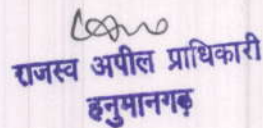 राजस्व अपील प्राधिकारी
हनुमानगढ़